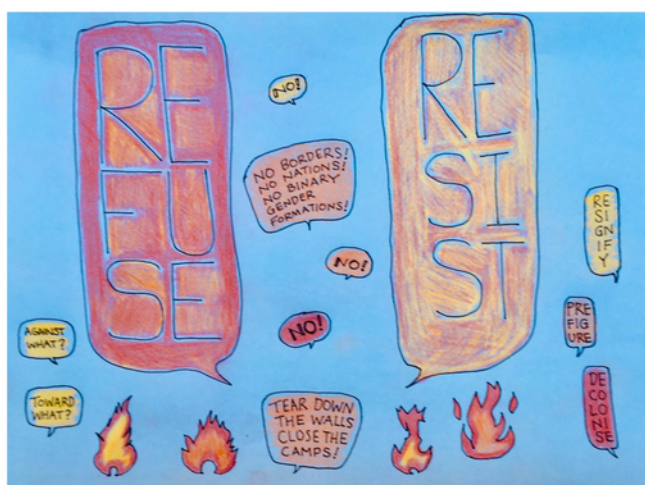 RE
FU
SE
NO!
NO BORDERS!
NO NATIONS!
NO BINARY
GENDER
FORMATIONS!
NO!
NO!
RE
SI
ST
RE
SI
GN
IF
Y
PRE
FIG
URE
DE
CO
LO
NI
SE
AGAINST
WHAT?
TOWARD
WHAT?
TEAR DOWN
THE WALLS
CLOSE THE
CAMPS!